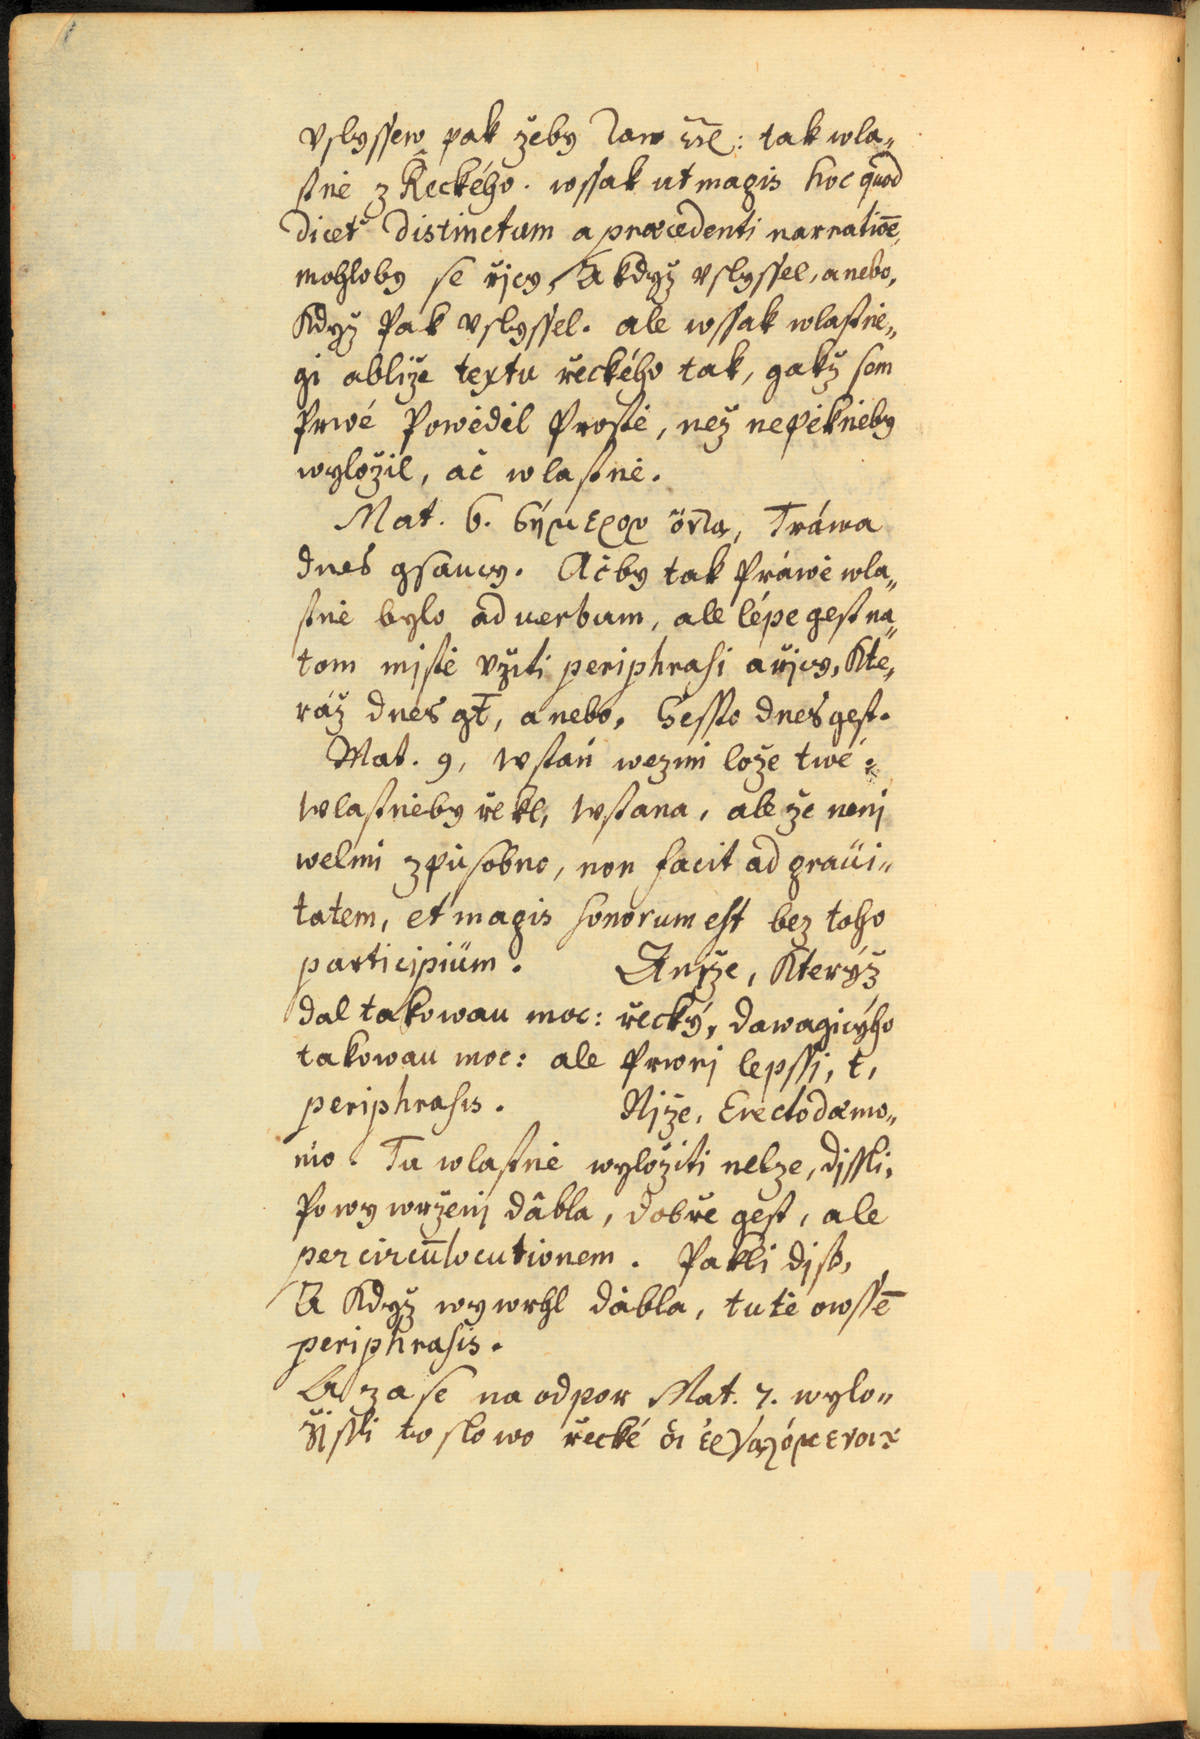 Vslyssew pak žeby Jan etc: tak wla„
stně z Řeckého. wssak ut magis hoc quod
dicet² distinctum a præcedenti narratiōe,
mohloby se řjcy, A když vslyssel, anebo,
Když Pak vslyssel. ale wssak wlastně„
gi a bljže textu řeckého tak, gakž sem
Prwé Powěděl Prostě, než nepěkněby
wyložil, ač wlastně.
Mat. 6. σήμερον ὄντα, Tráwa
dnes gsaucy. Ačby tak Práwě wla„
stně bylo ad uerbum, ale lépe gest na„
tom mjstě vžiti periphrasi a řjcy, Kte„
ráž dnes gt̄, anebo, Gessto dnes gest.
Mat. 9, Wstań wezmi lože twé:
Wlastněby řekl, Wstana, ale že nenj
welmi způsobno, non facit ad graüi„
tatem, et magis sonorum est bez toho
participiüm. A nјže, Kterýž
dal takowau moc: řecký, dawagicýho
takowau moc: ale Prwnj lepssj, t,
periphrasis. Njže, Eiecto dæmo„
nio. Tu wlastně wyložiti nelze, djssli,
Po wywrženj dábla, dobře gest, ale
per circūlocutionem. Pakli djss,
A Když wywrhl dábla, tutě owssē
periphrasis.
A zase na odpor Mat. 7. wylo„
žjssli to slowo řecké οἱ ἐργαζόμενοι: